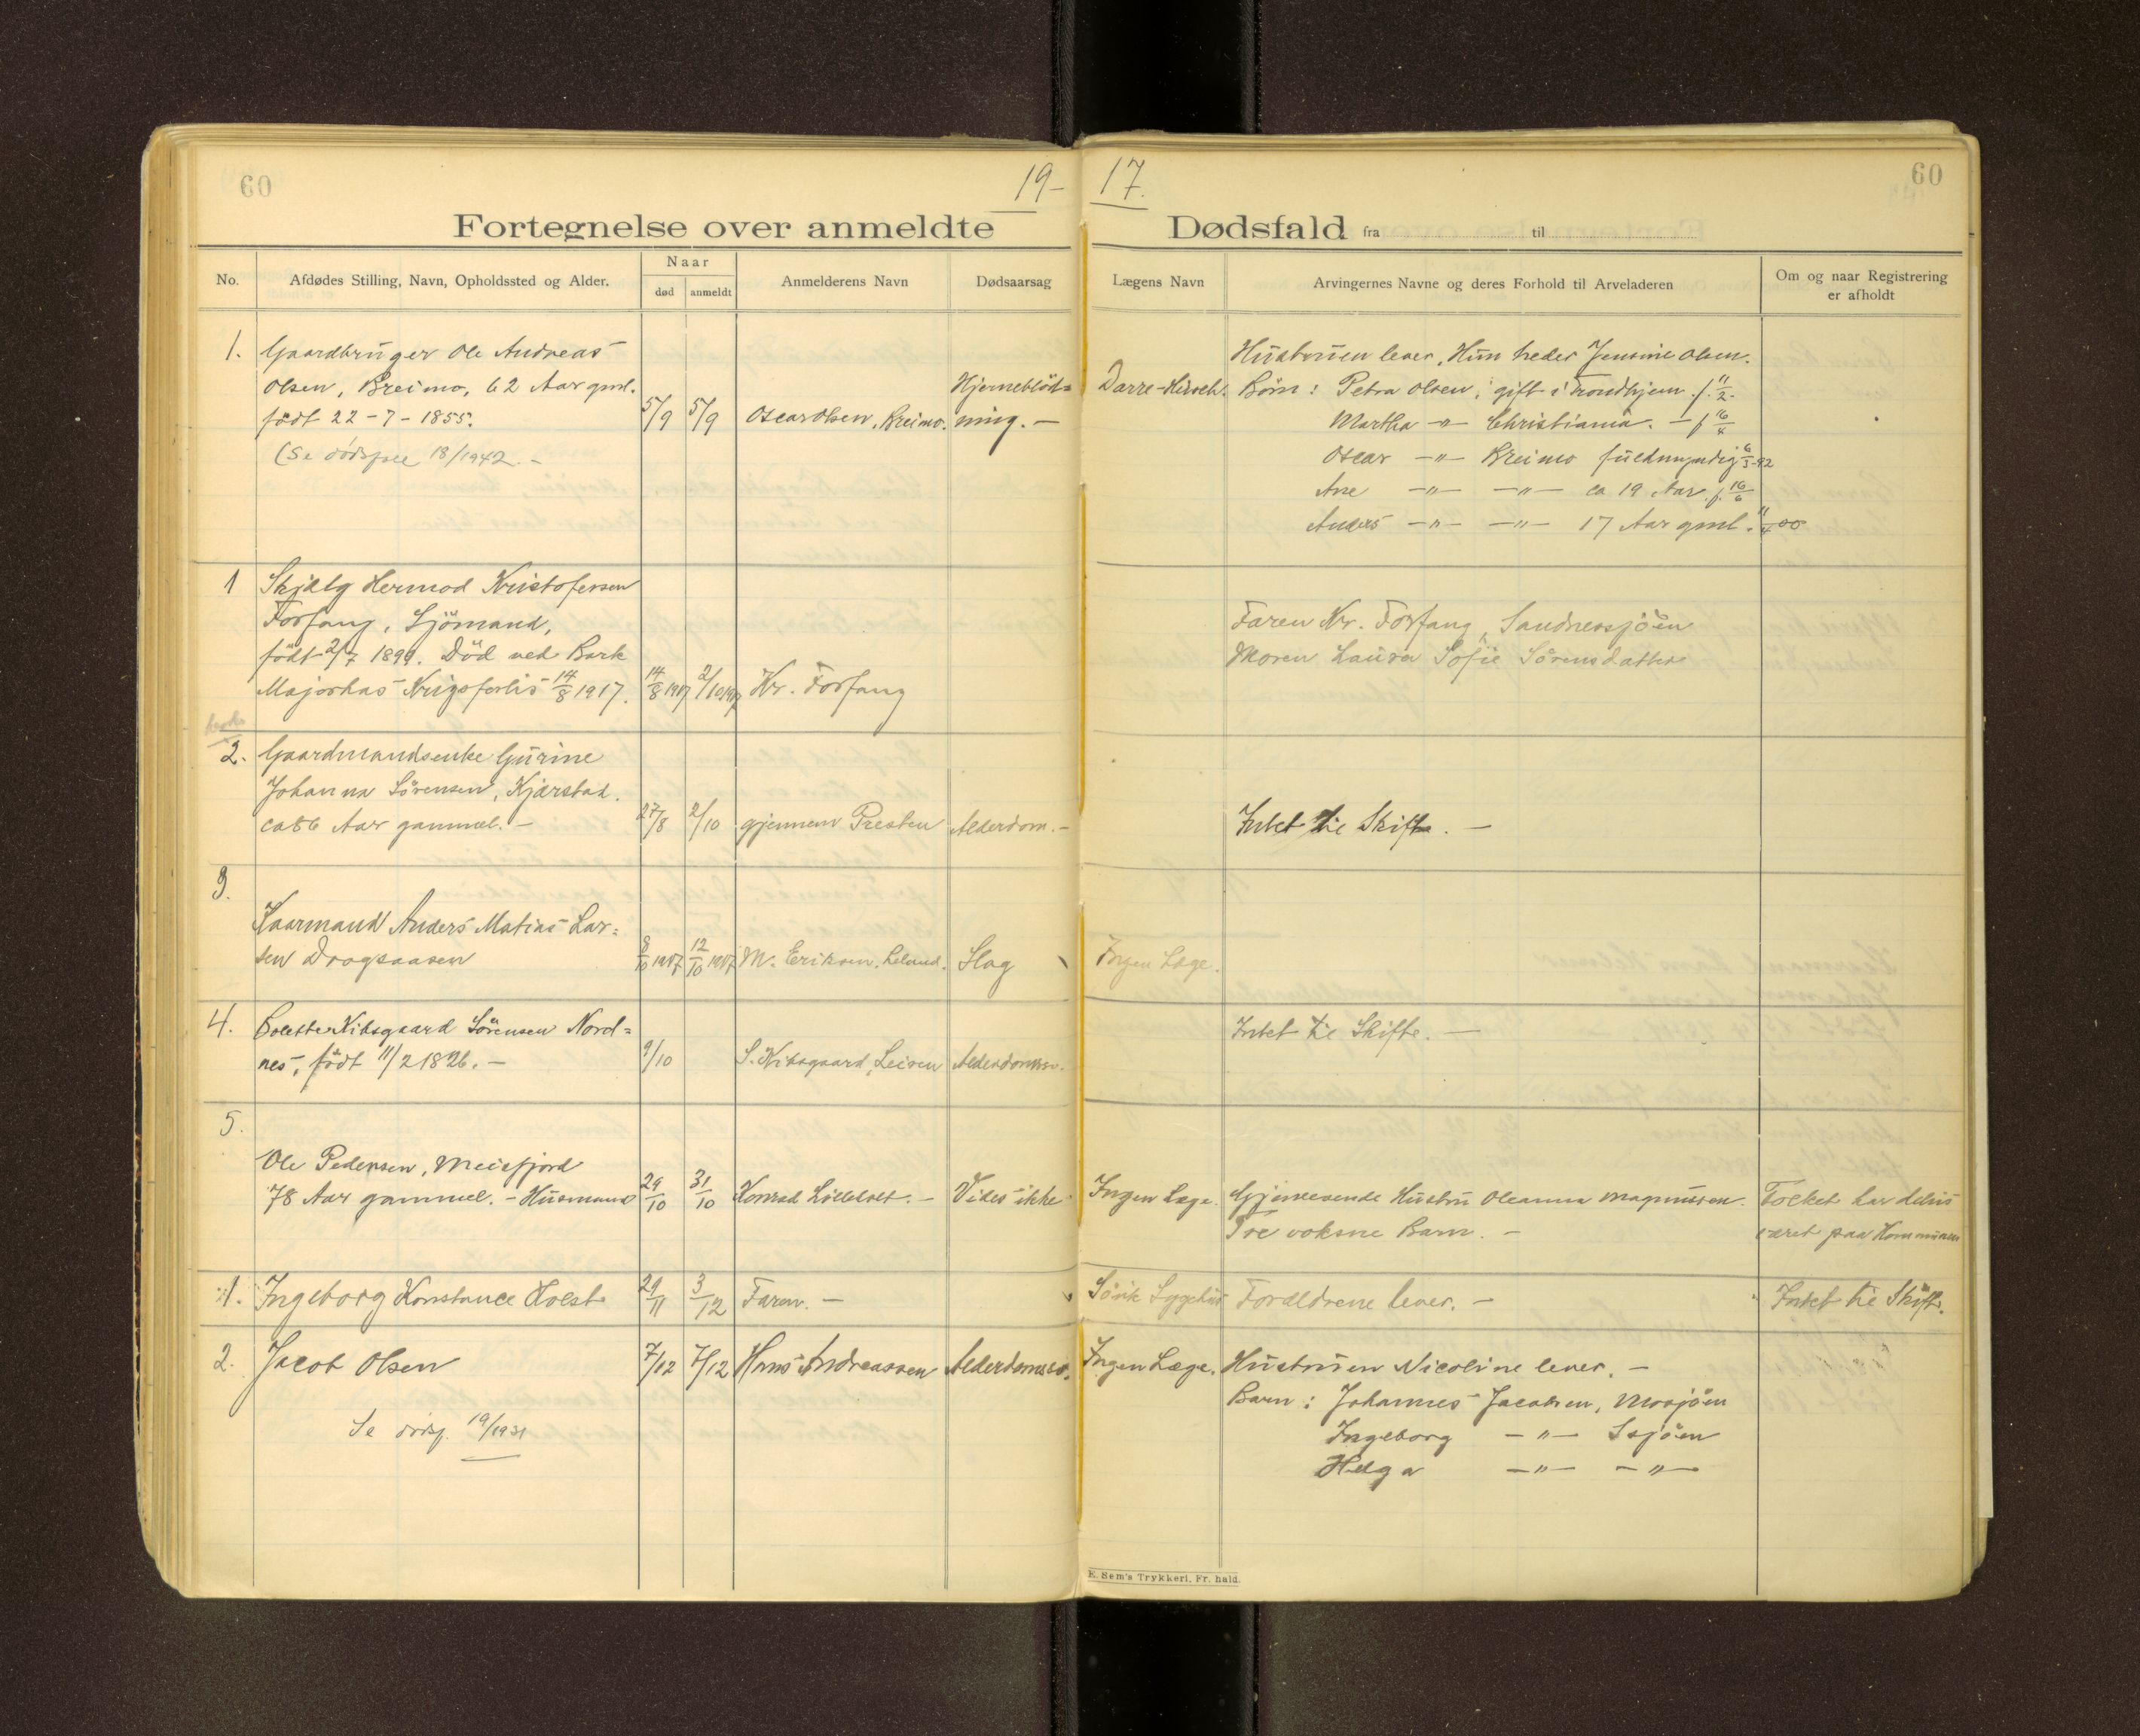 60
19-
17.
60
Fortegnelse over anmeldte
Dødsfald fra til
No.
Afdødes Stilling, Navn, Opholdssted og Alder.
Naar
død
anmeldt
Anmelderens Navn
Dødsaarsag
Lægens Navn
Arvingernes Navne og deres Forhold til Arveladeren
Om og naar Registrering
er afholdt
1. Gaardbruger Ole Andreas
Olsen, Breimo, 62 Aar gml.
født 22-7-1855.
(Se dødsfall 18/1942.-
5/9 5/9 Oscar Olsen, Breimo.
Hjerneblød=
ning. -
Darre-Hirsch.
Hustruen lever, Hun heder Jensine Olsen.
Børn: Petra Olsen, gift i Trondhjem f. 11/2.
Martha -"- Christiania. - f 16/4
Oscar -"- Breimo fuldmyndig 6/3-92
Ane -"- -"- ca 19 Aar f. 16/6
Anders -"- -"- 17 Aar gml. 11/4 00
1 Skjalg Hermod Kristofersen
Forfang, Sjömand,
født 2/7 1899. Död ved Bark
Majorkas Krigsforlis 14/8 1917.
14/8 1917 2/10 1917 Kr. Forfang
Faren Kr. Forfang, Sandnessjöen
Moren Laura Sofie Sörensdatter
2. Gaardmandsenke Gurine
Johanna Sörensen, Kjærstad.
ca 86 Aar gammel. -
27/8 2/10 gjennem Presten Alderdom. -
Intet til Skifte. -
3.
Kaarmand Anders Matias Lar=
sen Dragsaasen
8/10 1917 12/10 1917 M. Eriksen, Leland. Slag
Ingen Læge.
4. Bolette Kibsgaard Sörensen Nord=
nes, født 11/2 1826. -
9/10 S. Kibsgaard, Leiren
Intet til Skifte. -
5.
Ole Pedersen, Meisfjord
78 Aar gammel. - Husmand
29/10 31/10 Konrad - Vides ikke
Ingen Læge.
Gjenlevende Hustru Oleanna Magnussen.
Tre voksne Barn. -
Folket har delvis
været paa Kommunen
1. Ingeborg Konstance Holst
29/11 3/12 Faren. -
Sygehus
Forældrene lever. -
Intet til Skifte.
2. Jacob Olsen
Se dødsf. 19/1931
7/12 7/12 Hans Andreassen
Ingen Læge.
Hustruen Nicoline lever. -
Barn: Johannes Jacobsen, Mosjöen
Ingeborg -"- Ssjöen
Helga -"- -"-
E. Sem's Trykkeri, Fr. hald.